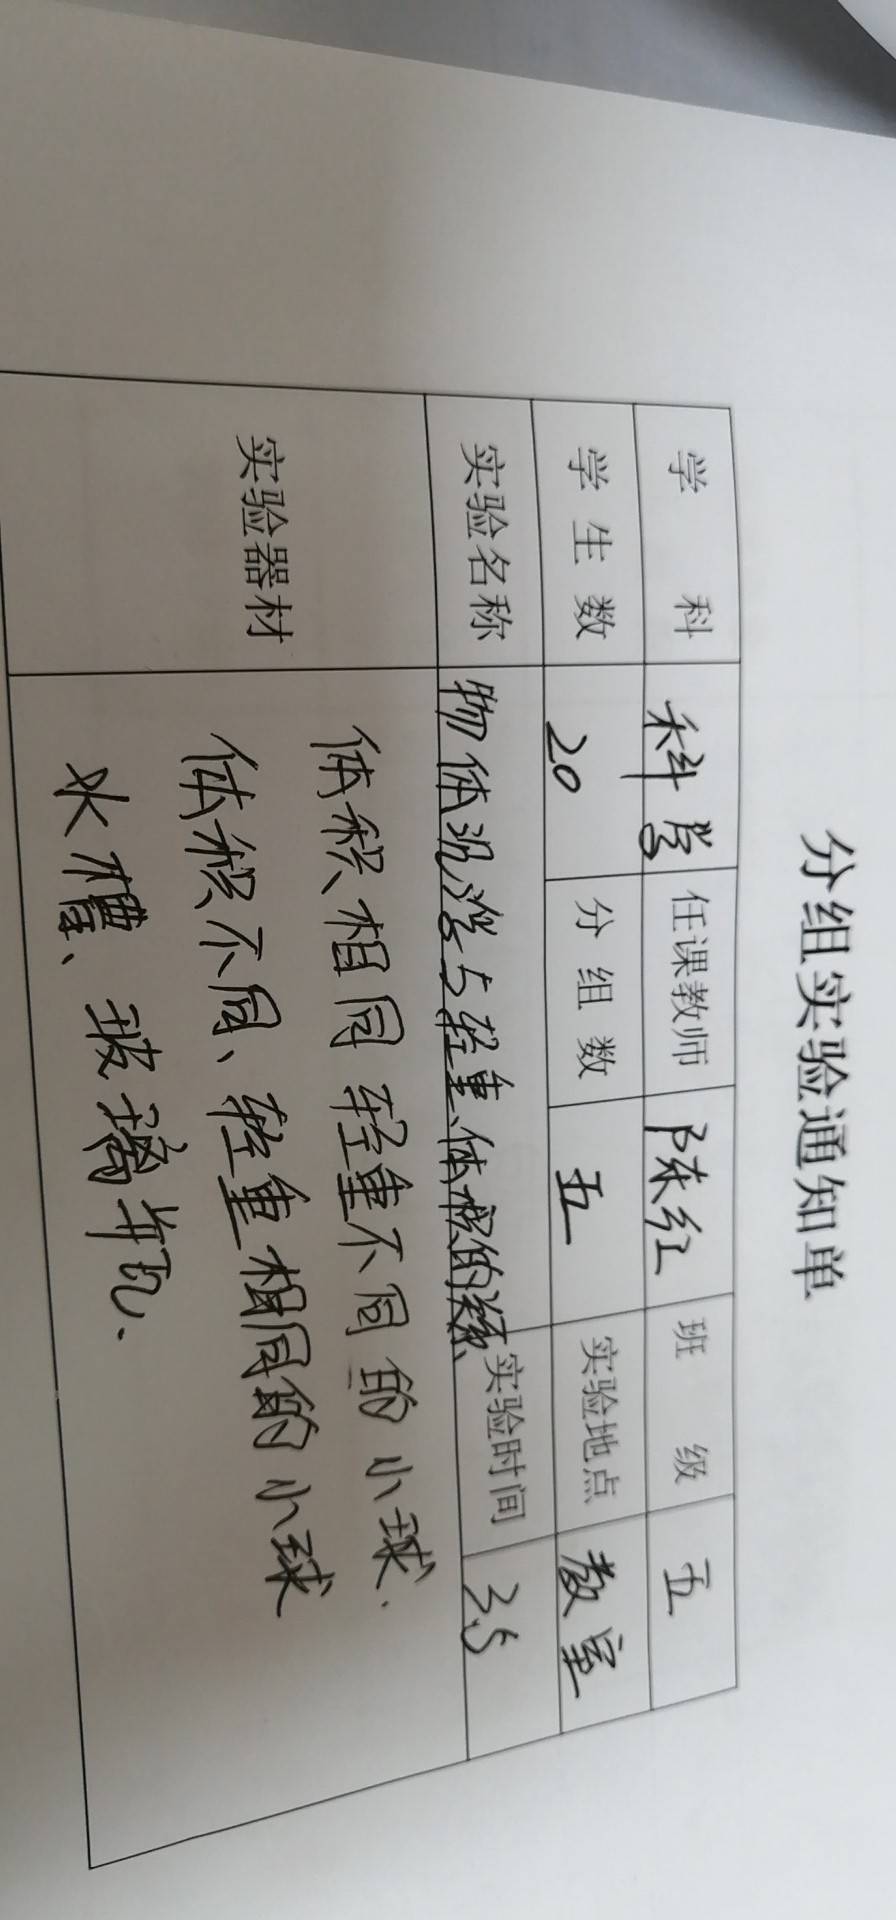 分组实验通知单
学 科 科学 任课教师 陈红 班 级 五
学生数 20 分组数 五 实验地点 教室
实验名称 物体沉浮与轻重、体积的关系 实验时间 35
实验器材 体积相同轻重不同的小球.
体积不同、轻重相同的小球
水槽、玻璃并瓦.